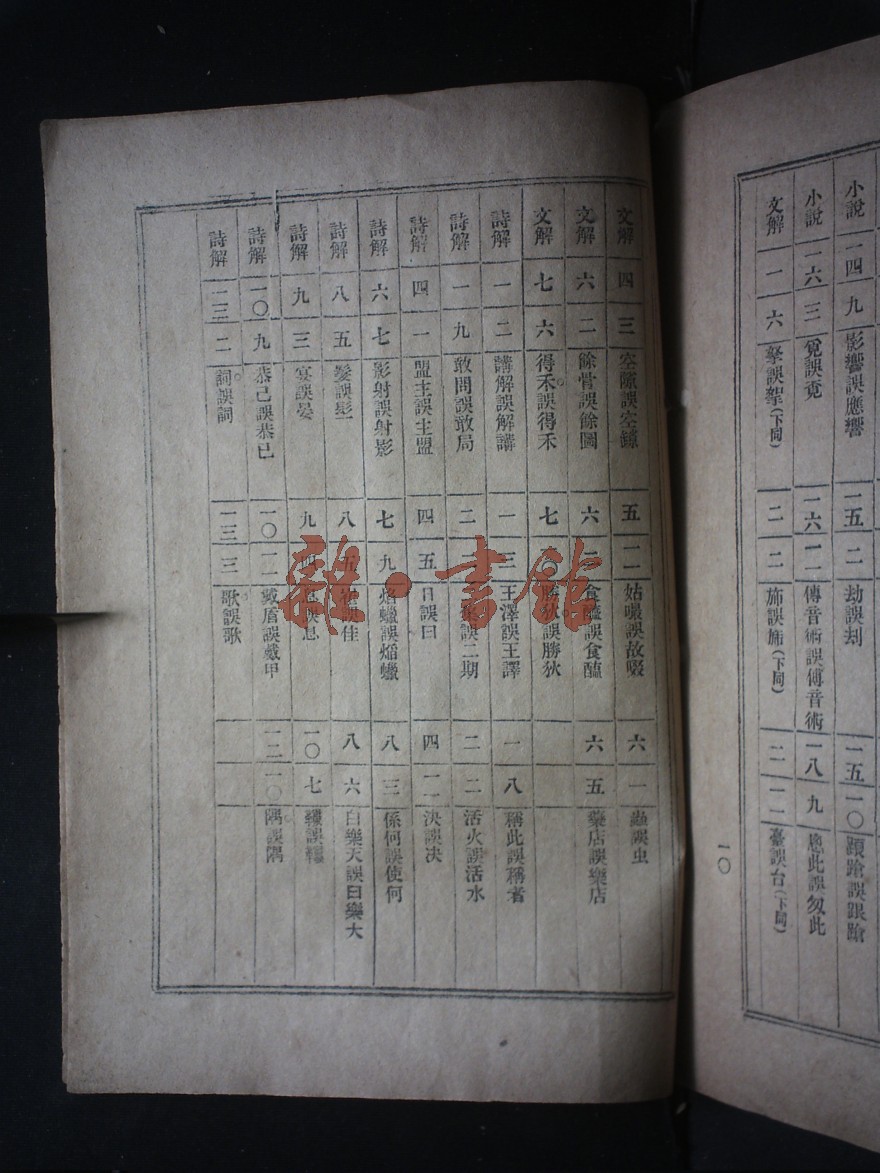 小說 一四 九 影響誤應響 一五 二 劫誤刦 一五 一〇 踉蹌誤跟蹌
小說 一六 三 覓誤竟 一六 一一 傳音術誤傅音術 一八 九 悤此誤匆此
文解 一 六 拏誤挐(下同) 二 二 施誤旆(下同) 二 一二 臺誤台(下同)
一〇
文解 四 三 空隙誤空鏬 五 一二 姑啜誤故啜 六 一 蟲誤虫
文解 六 二 餘膏誤餘圖 六 食醯誤食醢 六 五 藥店誤樂店
文解 七 六 得禾誤得禾 七 〇 狄誤勝狄
詩解 一 二 講解誤解講 一 三 王澤誤王譯 一 八 稱此誤稱者
詩解 一 九 敢問誤敢局 二 誤二期 二 二 活火誤活水
詩解 四 一 盟主誤主盟 四 五 日誤曰 四 一一 決誤决
詩解 六 七 影射誤射影 七 九 焰蠟誤熖蠟 八 三 係何誤使何
詩解 八 五 髮誤髟 八 五 誤佳 八 六 白樂天誤曰樂大
詩解 九 三 宴誤晏 九 四 誤息 一〇 七
詩解 一〇 九 恭己誤恭已 一〇 一二 戴盾誤戴甲 一二 一〇 隅誤隅
詩解 一三 二 詞誤詞 一三 三 歌誤歌
雜·書館